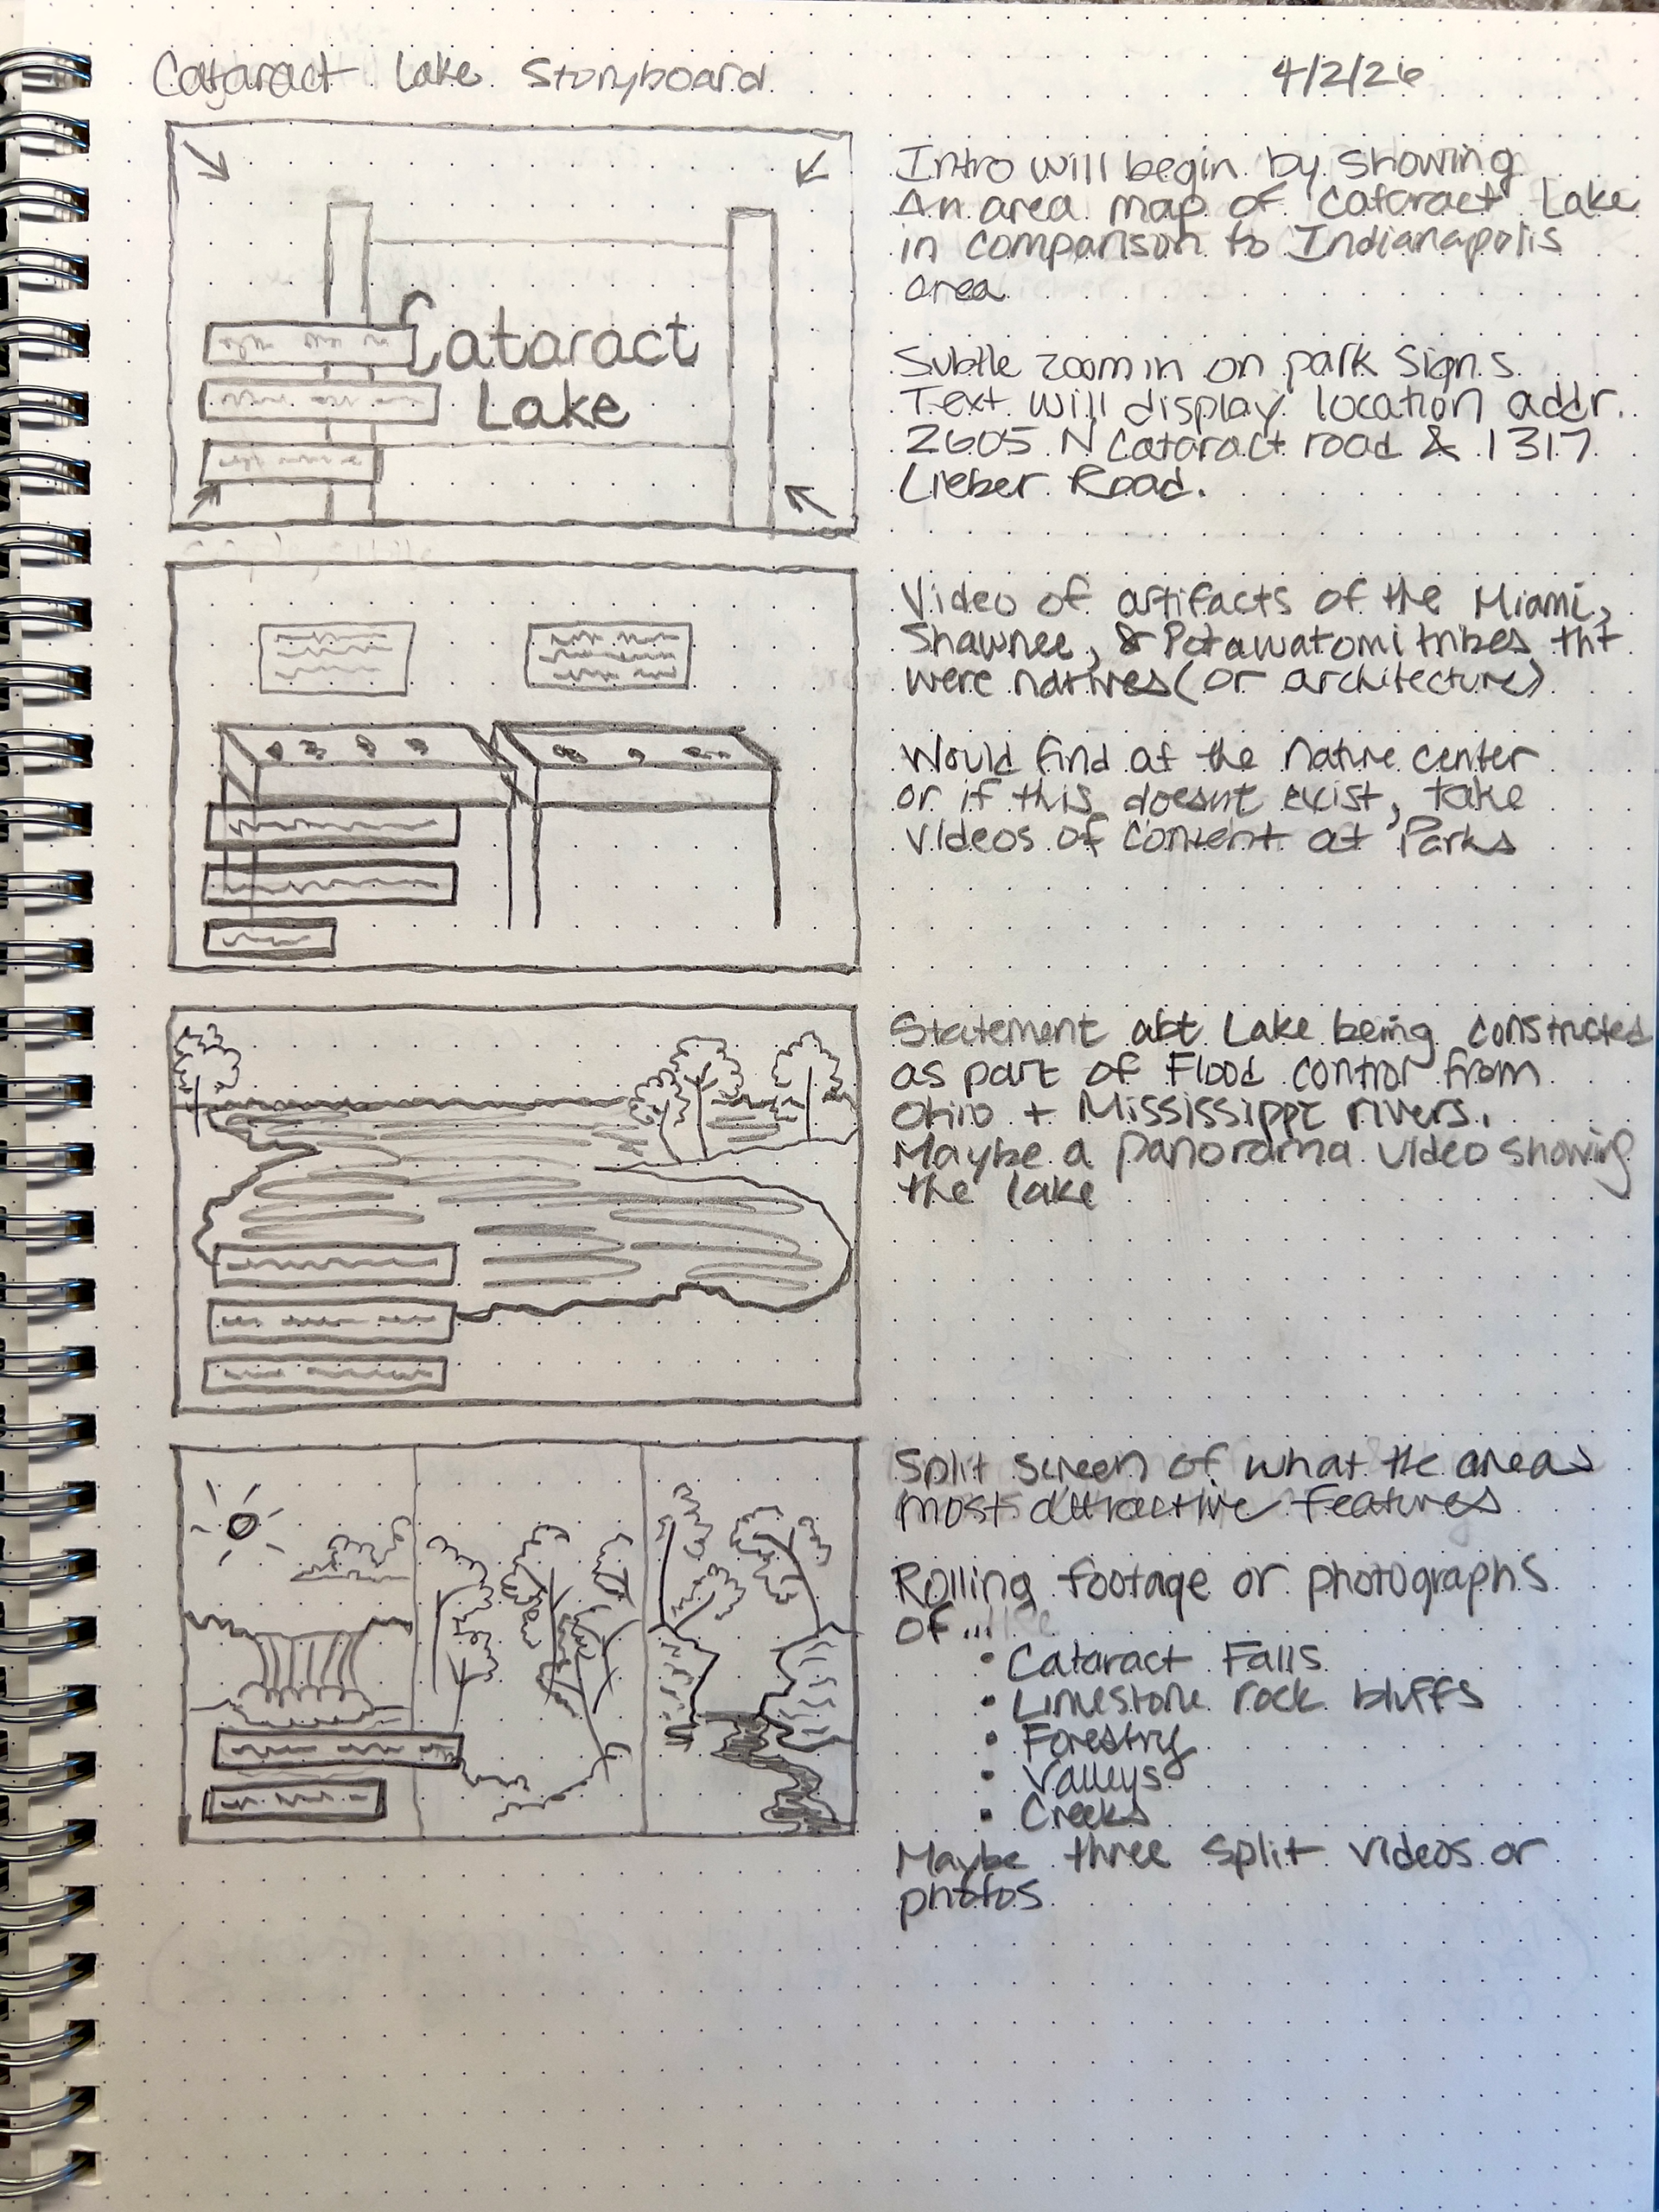 Cataract Lake Storyboard
4/2/26
Cataract
Lake
Intro will begin by showing
An area map of Cataract Lake
in comparison to Indianapolis
area
Subtle zoom in on park signs
Text will display location addr.
2605 N Cataract road & 1317
Lieber Road.
Video of artifacts of the Miami,
Shawnee, & Potawatomi tribes tht
were natives (or architecture)
Would find at the nature center
or if this doesnt exist, take
videos of content at Parks
Statement abt Lake being constructed
as part of Flood control from
Ohio + Mississippi rivers.
Maybe a panorama video showing
the lake
Split screen of what the areas
most attractive features
Rolling footage or photographs
of...
• Cataract Falls
• Limestone rock bluffs
• Forestry
• Valleys
• Creeks
Maybe three split videos or
photos